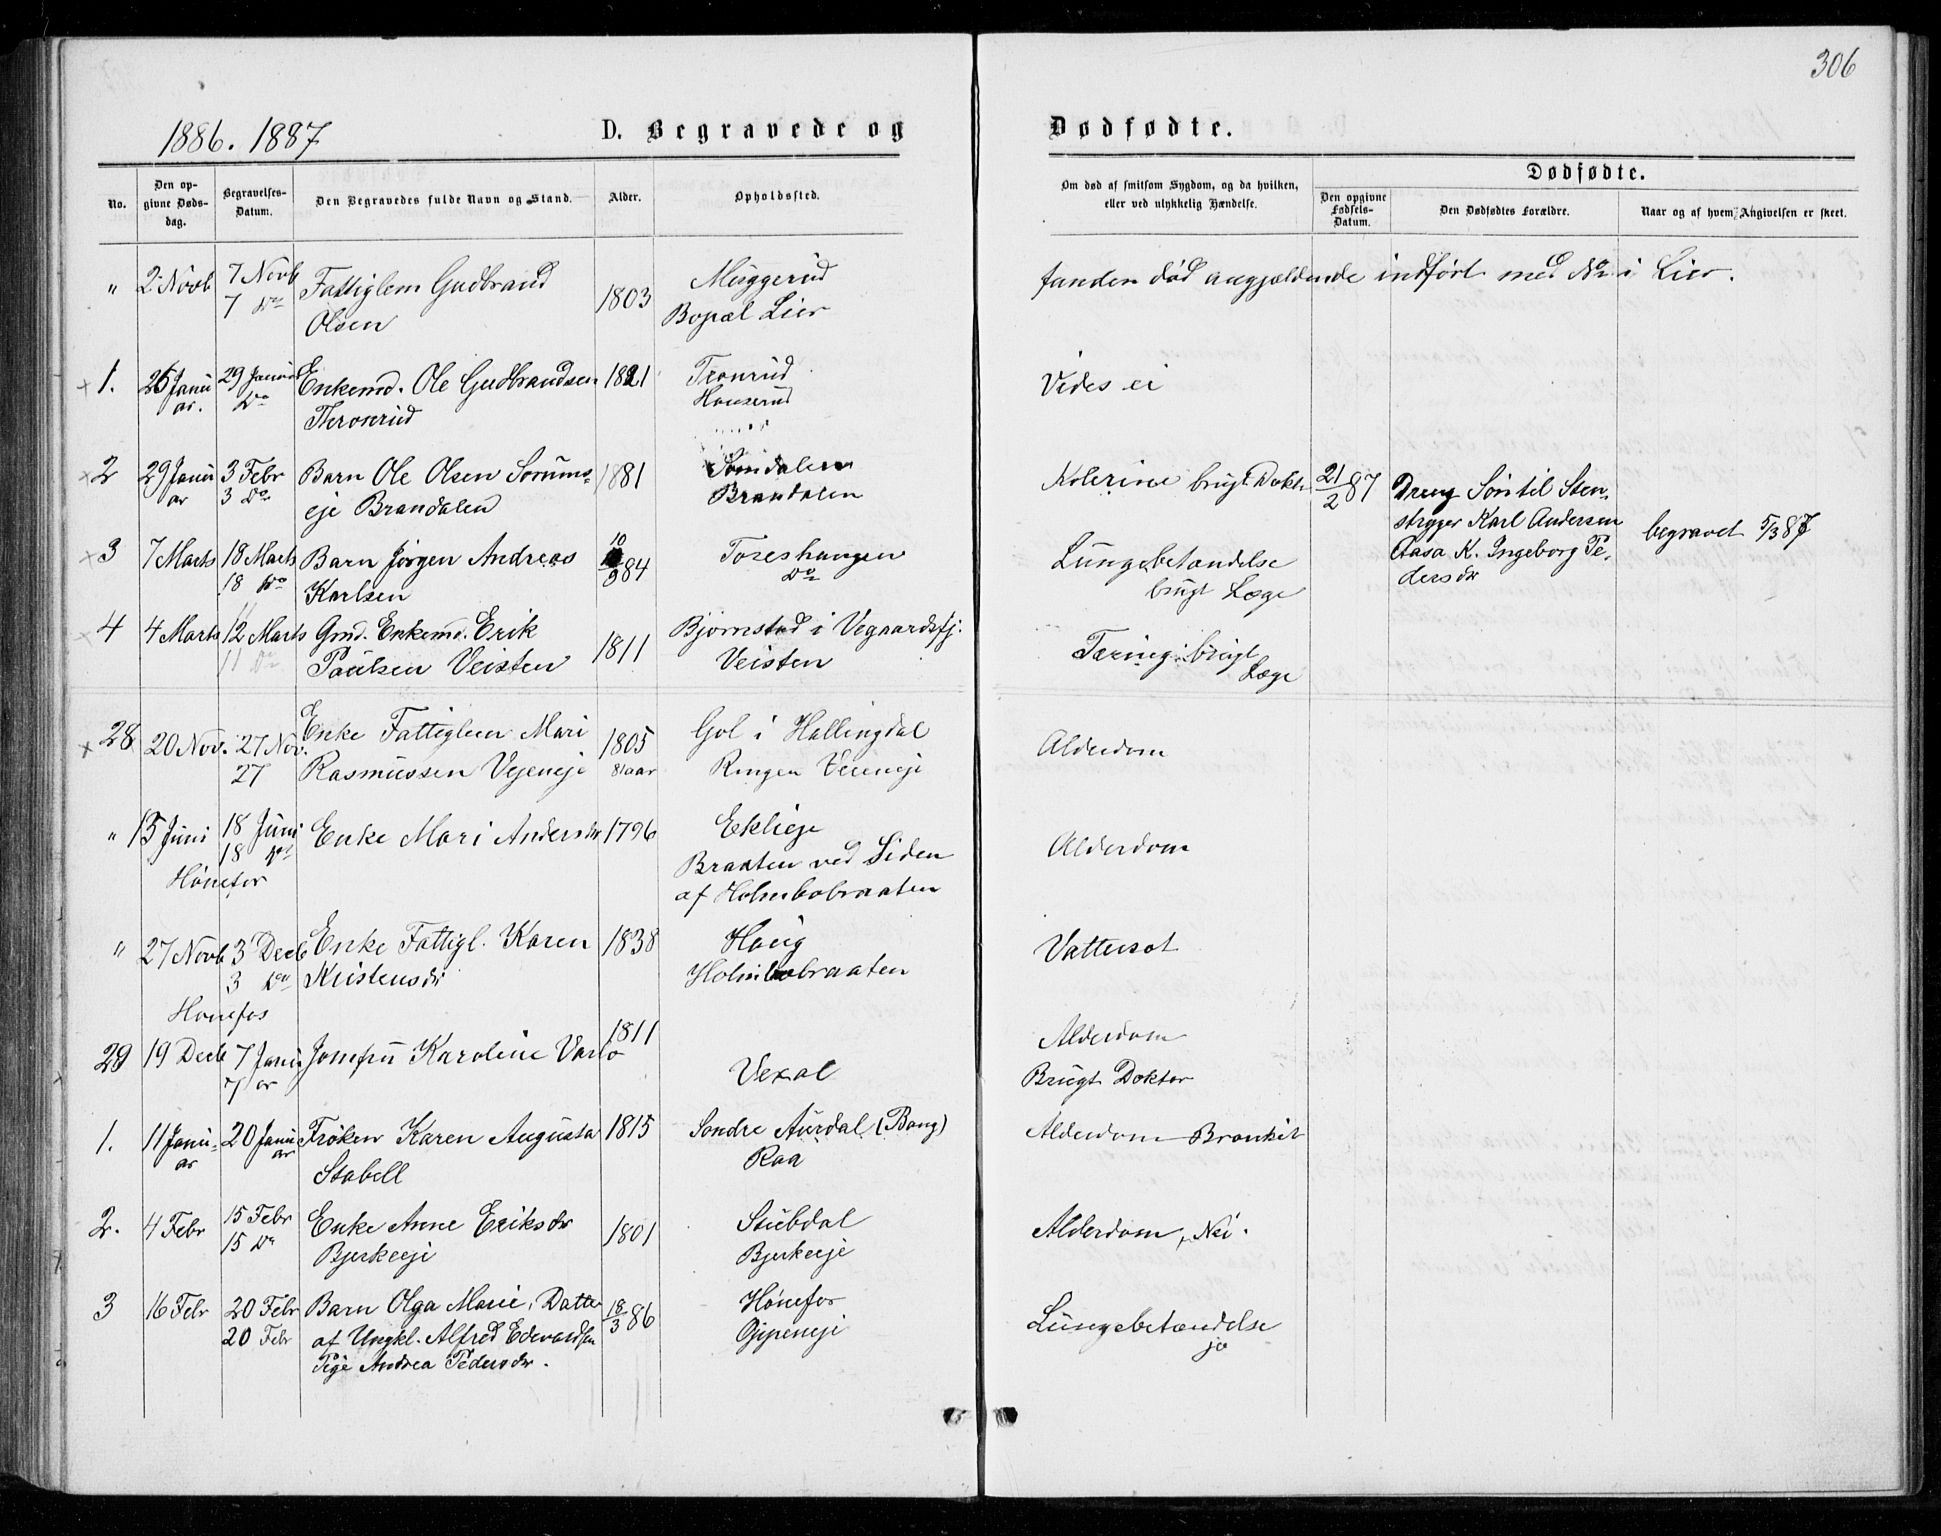 306
1886. 1887
D. Begravede og Dødfødte.
No.
Den opgivne Døds-dag.
Begravelses-Datum.
Den Begravedes fulde Navn og Stand.
Alder.
Opholdssted.
Om død af smitsom Sygdom, og da hvilken, eller ved ulykkelig Hændelse.
Dødfødte.
Den opgivne Fødsels-Datum.
Den Dødfødtes Forældre.
Naar og af hvem Angivelsen er skeet.
" 2 Novb 7 Novb Fattiglem Gudbrand 1803 Muggerud
7 Do Olsen Bopæl Lier
funden død angjældende indført med No i Lier.
1. 25 Janu 29 Januar Enkemd. Ole Gudbrandsen 1821 Tronrud Vides ei
ar. Do Thronrud Houserud
2 29 Janu 3 Febr Barn Ole Olsen Sorums= 1881 Somdalen Kolerine brugt Doktr 21/2 87 Dreng Søn til Sten-
ar 3 Do eje Brandalen Brandalen
stryger Karl Andersen
Aasa K. Ingeborg Pe-
dersdr
begravet 5/3 87
3 7 Marts 18 Marts Barn Jørgen Andreas 10/9 84 Toreshaugen Lungebetændelse
18 Do Karlsen Do brugt Læge
4 4 Marts 12 Marts Gmd. Enkemd. Erik 1811 Bjørnstad i Vegaardsfj. Tæring brugt
11 Do Paulsen Veisten Veisten Læge
28 20 Nov. 27 Nov. Enke Fattiglem Mari 1805 Gol i Hallingdal Alderdom
27 Rasmussen Vejeneje 81 aar Ringen Veieneje
" 15 Juni 18 Juni Enke Mari Andersdr 1796 Eklieje Alderdom
18 Do Braaten ved Siden
Hønefos af Holmbobraaten
" 27 Novb 3 Decb Enke Fattigl. Karen 1838 Houg Vattersot
3 Do Kristensdr Holmbobraaten
Hønefos
29 19 Decb 7 Janu Jomfru Karoline Varlo 1811 Vexal Alderdom
7 ar Brugt Doktor
1. 11 Janu- 20 Janu Frøken Karen Augusta 1815 Sondre Aurdal (Bang) Alderdom Bronkit
ar ar Stabell Raa
2. 4 Febr 15 Febr Enke Anne Eriksdr 1801 Stubdal Alderdom, Nei.
15 Do Bjerkeeje Bjerkeeje
3 16 Febr 20 Febr Barn Olga Marie, Datte 18/3 86 Hønefos Lungebetændelse
20 Febr af Ungkl. Alfred Edvardsen Gjpeneje ja
Pige Andrea Pedersdr.